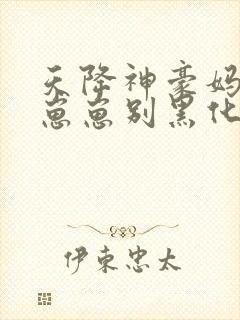 天降神豪妈
崽崽别黑化
伊束忠太